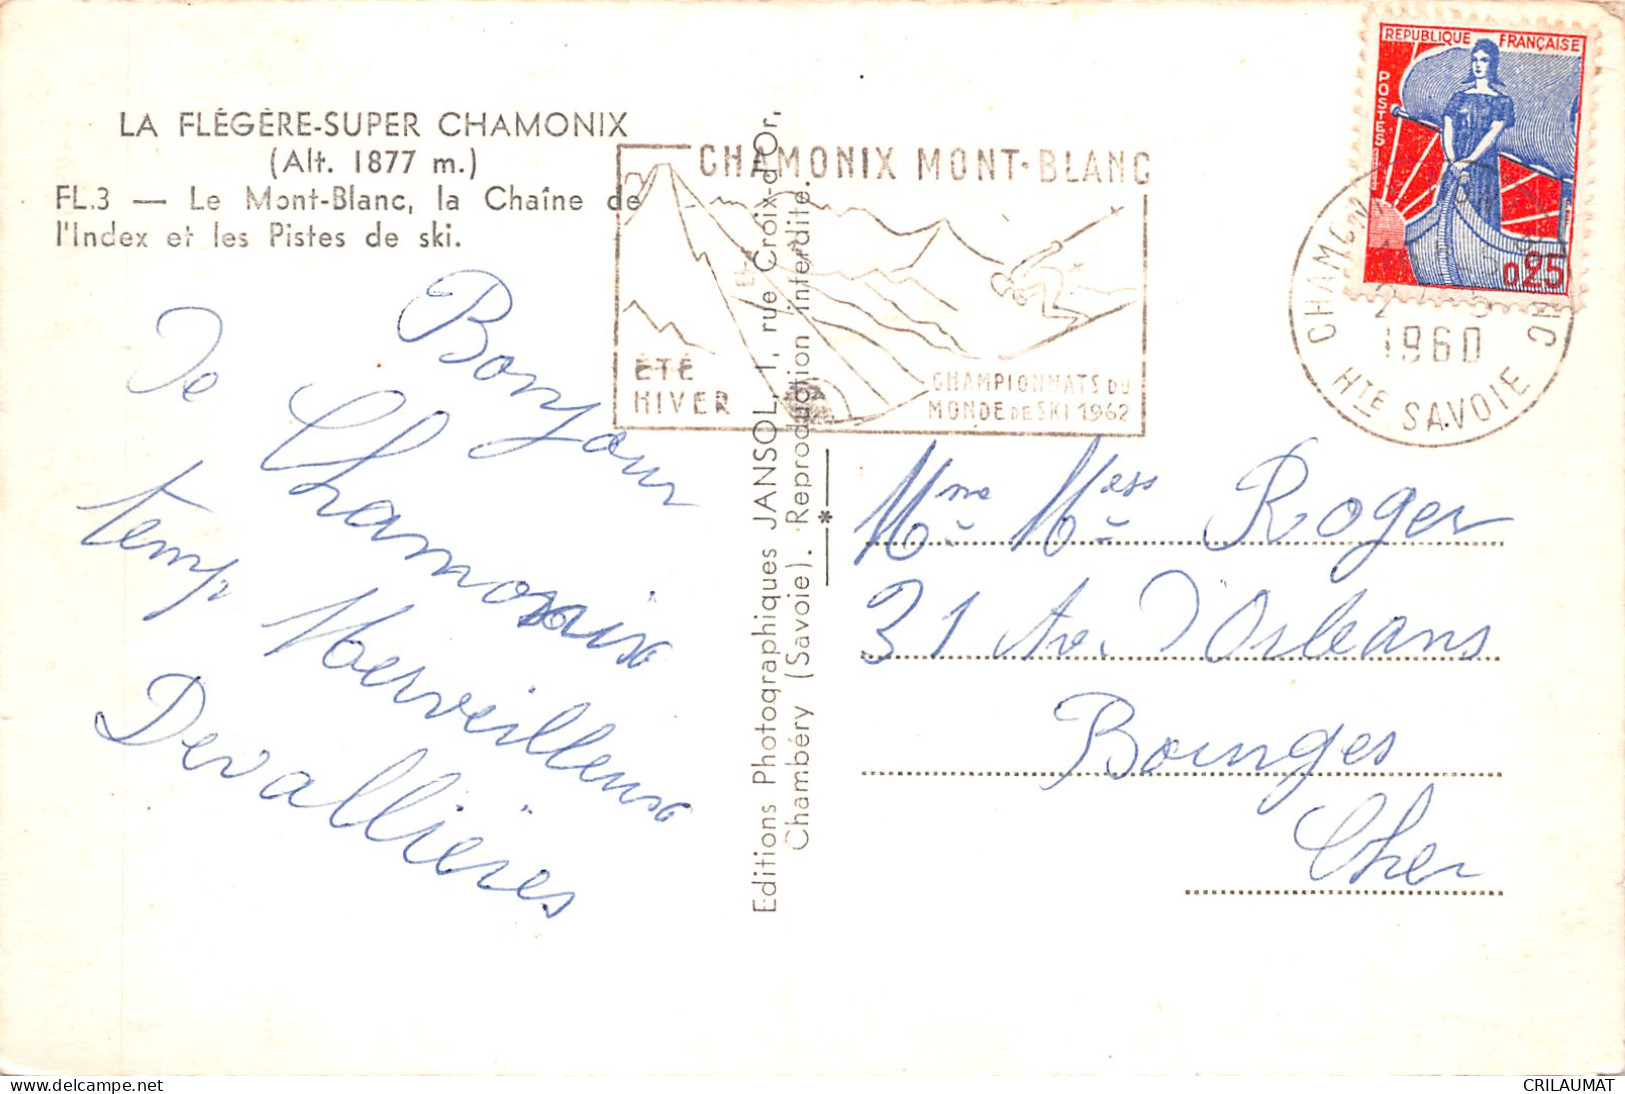 LA FLÉGÈRE-SUPER CHAMONIX
(Alt. 1877 m.)
FL.3 — Le Mont-Blanc, la Chaîne de
l'Index et les Pistes de ski.
Bonjour
De Chamonix
temp Merveilleux
Devallières
Editions Photographiques JANSOL, 1, rue Croix-d'Or,
Chambéry (Savoie). Reproduction interdite.
CHAMONIX MONT-BLANC
ÉTÉ
HIVER
CHAMPIONNATS DU
MONDE DE SKI 1962
REPUBLIQUE FRANÇAISE
POSTES
0,25
CHAMONIX MONT-BLANC
1960
HTE SAVOIE
Mme Roger
31 Av. d'Orleans
Bourges
Cher
CRILAUMAT